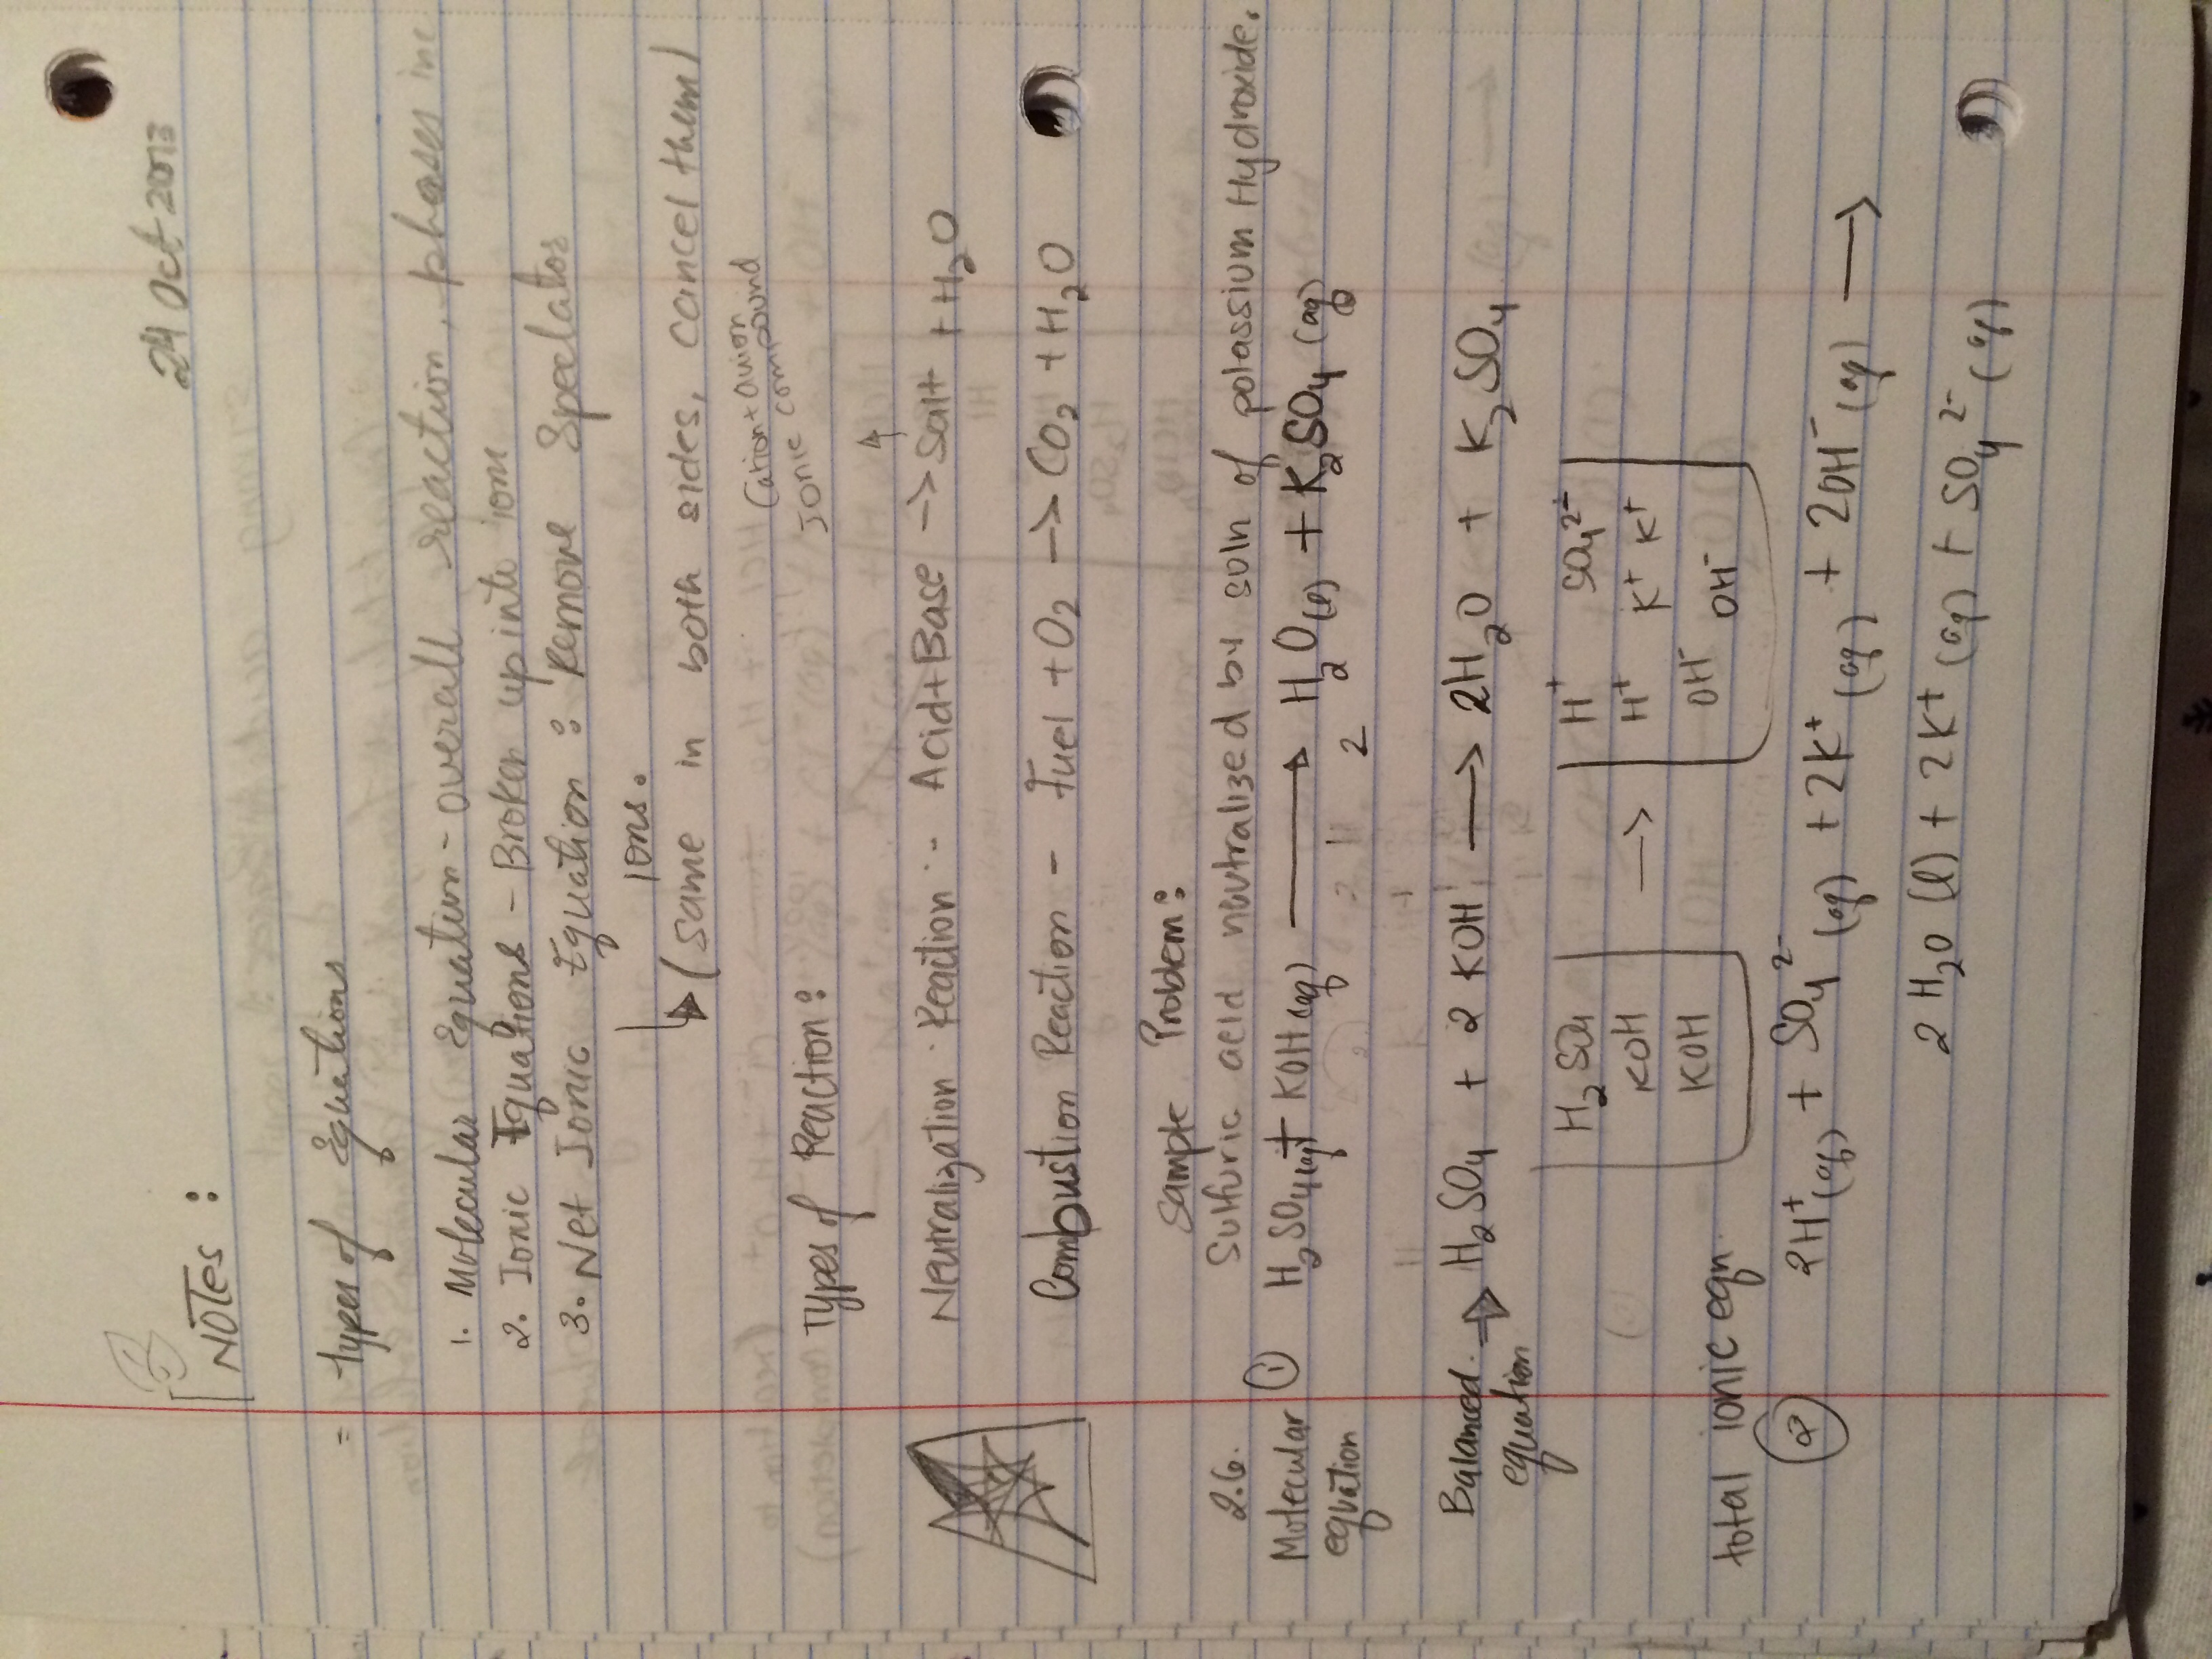 24 Oct 2013
NOTES :
= Types of Equations
1. Molecular Equation - overall reaction, phases inc
2. Ionic Equations - Broken up into ion
3. Net Ionic Equation : Remove Spectator
Ions.
(same in both sides, cancel them)
Cation + anion
Ionic compound
Types of Reaction :
Neutralization Reaction - Acid + Base -> Salt + H₂O
Combustion Reaction - Fuel + O₂ -> CO₂ + H₂O
Sample Problem :
2.6. Sulfuric acid neutralized by soln of potassium Hydroxide.
Molecular equation ① H₂SO₄(aq) + KOH(aq) ⟶ H₂O(l) + K₂SO₄(aq)
2 2
Balanced equation → H₂SO₄ + 2 KOH ⟶ 2H₂O + K₂SO₄
H₂SO₄ H⁺ SO₄²⁻
KOH -> H⁺ K⁺ K⁺
KOH OH⁻ OH⁻
total ionic eqn.
② 2H⁺(aq) + SO₄²⁻(aq) + 2K⁺(aq) + 2OH⁻(aq) ⟶
2 H₂O (l) + 2K⁺(aq) + SO₄²⁻(aq)